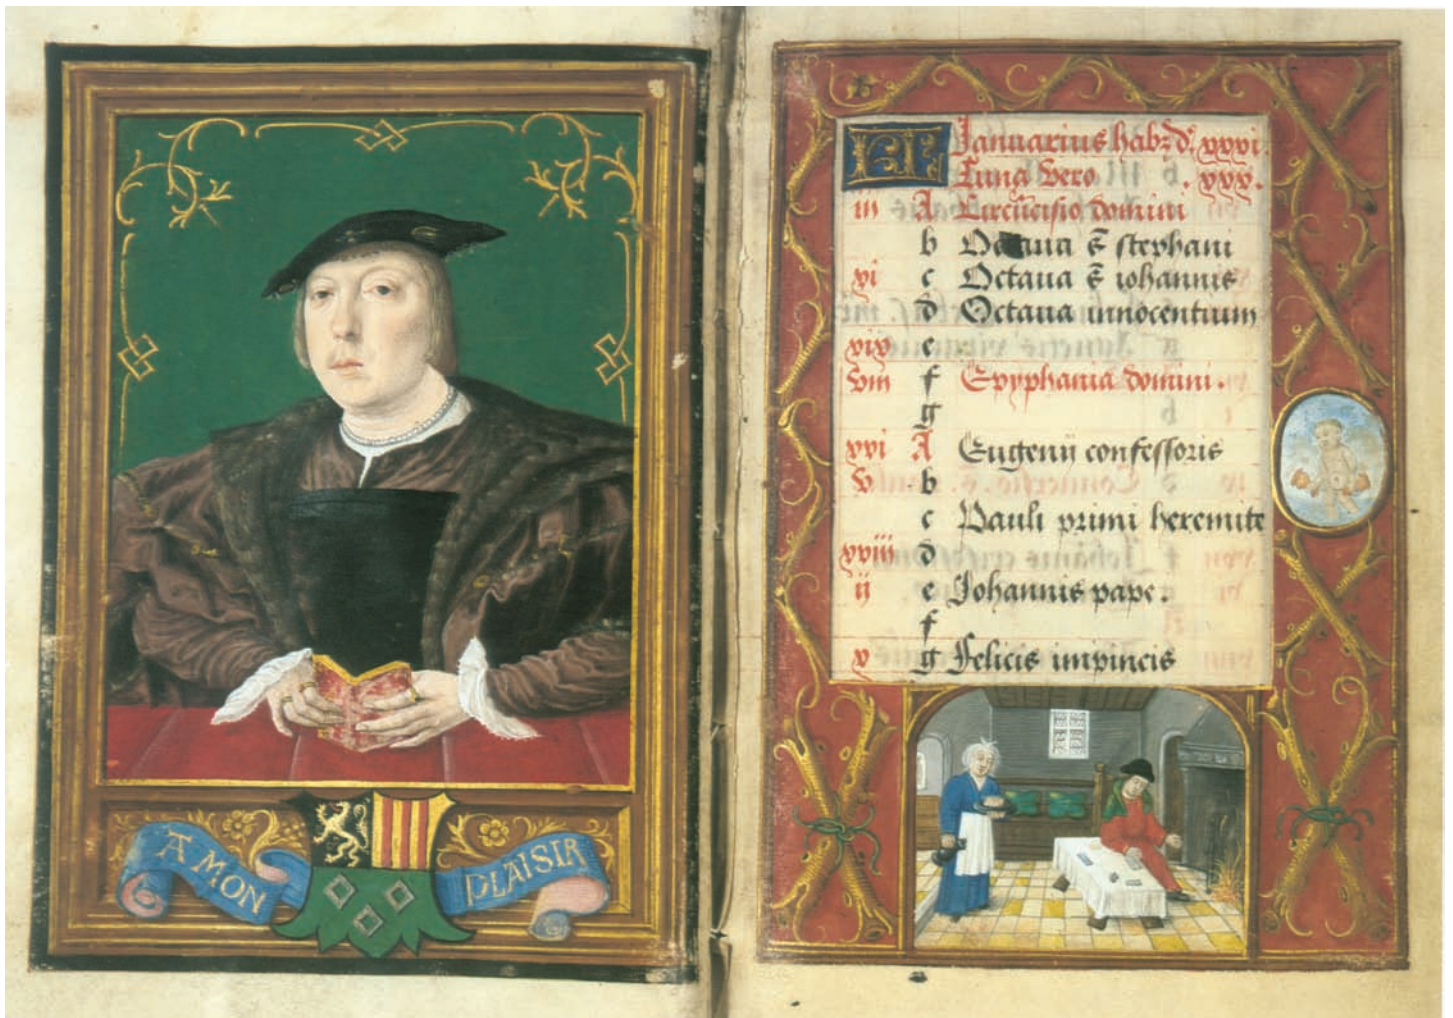 A MON PLAISIR
KL Januarius habꝫ d. xxxi.
Luna vero . xxx.
iii A Circūcisio domini
b Octaua s̄ stephani
xi c Octaua s̄ iohannis
d Octaua innocentium
xix e
viii f Epyphania domini .
g
xvi A Eugenij confessoris
v b
c Pauli primi heremite
xviii d
ii e Johannis pape .
f
x g Felicis inpincis